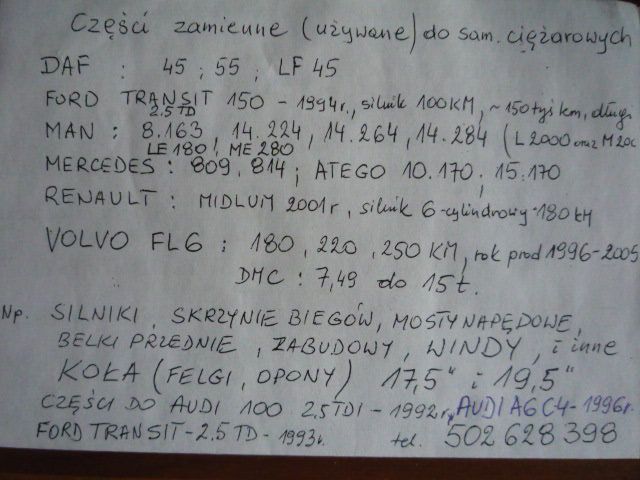 Części zamienne (używane) do sam. ciężarowych
DAF : 45 ; 55 ; LF 45
FORD TRANSIT 150 - 1994r., silnik 100KM, ~150tyś km, długi
2.5 TD
MAN : 8.163, 14.224, 14.264, 14.284 (L2000 oraz M20C
LE 180!, ME 280
MERCEDES : 809, 814 ; ATEGO 10.170 ; 15.170
RENAULT : MIDLUM 2001r, silnik 6-cylindrowy 180KM
VOLVO FL6 : 180, 220, 250 KM, rok prod 1996-2005
DMC : 7,49 do 15t.
Np. SILNIKI, SKRZYNIE BIEGÓW, MOSTY NAPĘDOWE,
BELKI PRZEDNIE, ZABUDOWY, WINDY, i inne
KOŁA (FELGI, OPONY) 17,5" i 19,5"
CZĘŚCI DO AUDI 100 2,5TDI - 1992r, AUDI A6 C4 - 1996r.
FORD TRANSIT - 2.5 TD - 1993r. tel. 502 628 398